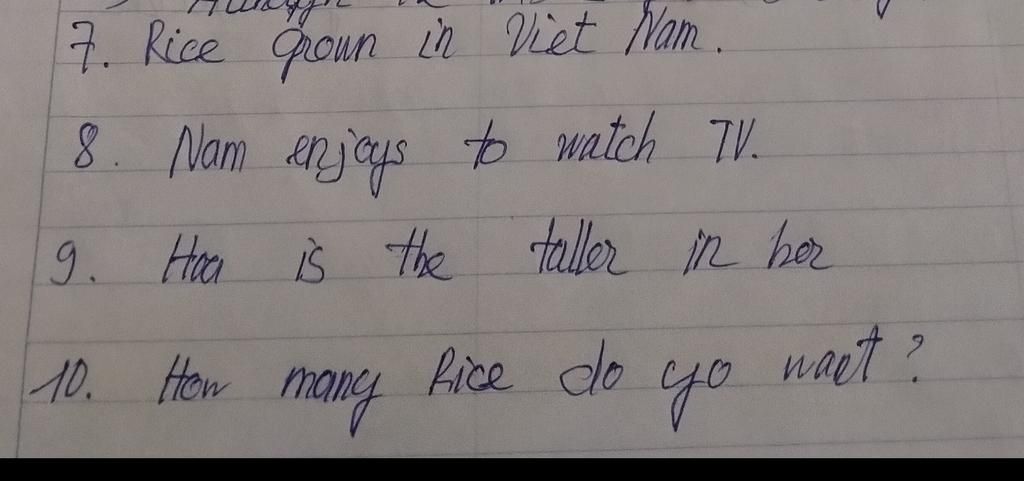 7. Rice grown in Viet Nam.
8. Nam enjoys to watch TV.
9. Hoa is the taller in her
10. How many Rice do yo want?